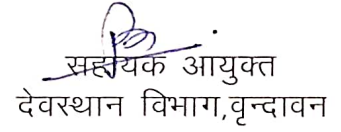 सहायक आयुक्त
देवस्थान विभाग,वृन्दावन